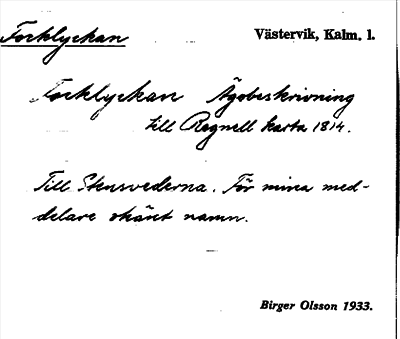 Torklyckan
Västervik, Kalm. l.
Torklyckan Ägobeskrivning
till Regnell karta 1814.
Till Stensvederna. För mina med-
delare okänt namn.
Birger Olsson 1933.